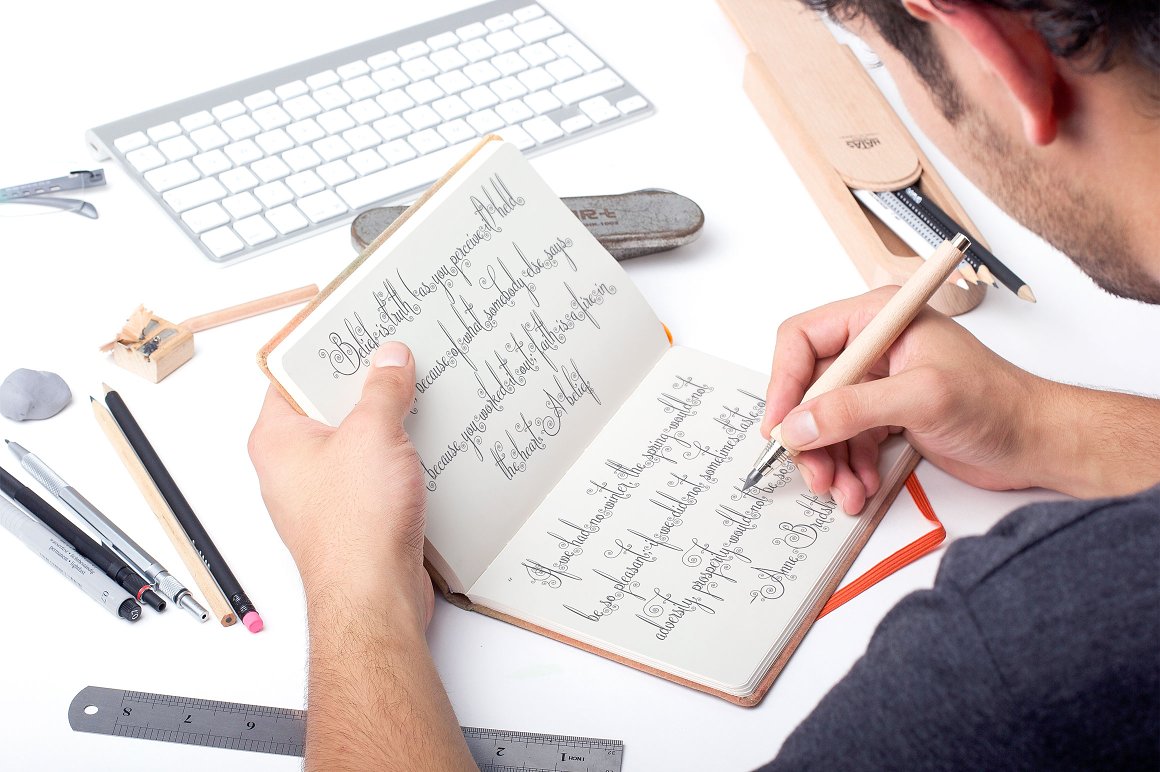 Belief is truth (as you perceive it held
, because of what somebody else says
because you worked it out. Faith is a fire in
the heart. A belief
If we had no winter the spring would not
be so pleasant: if we did not sometimes taste
adversity, prosperity would not be so
Anne Bradstr
8 7 6 2 1 INCH